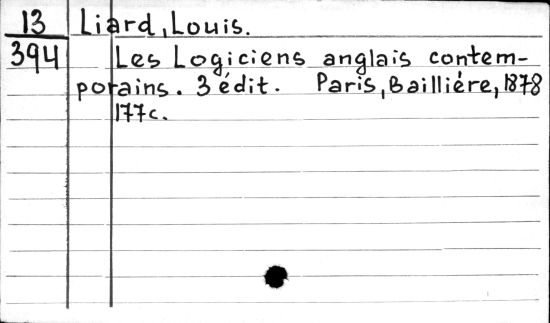 13 Liard, Louis.
394 Les Logiciens anglais contem-
porains. 3 édit. Paris, Baillière, 1878
177c.